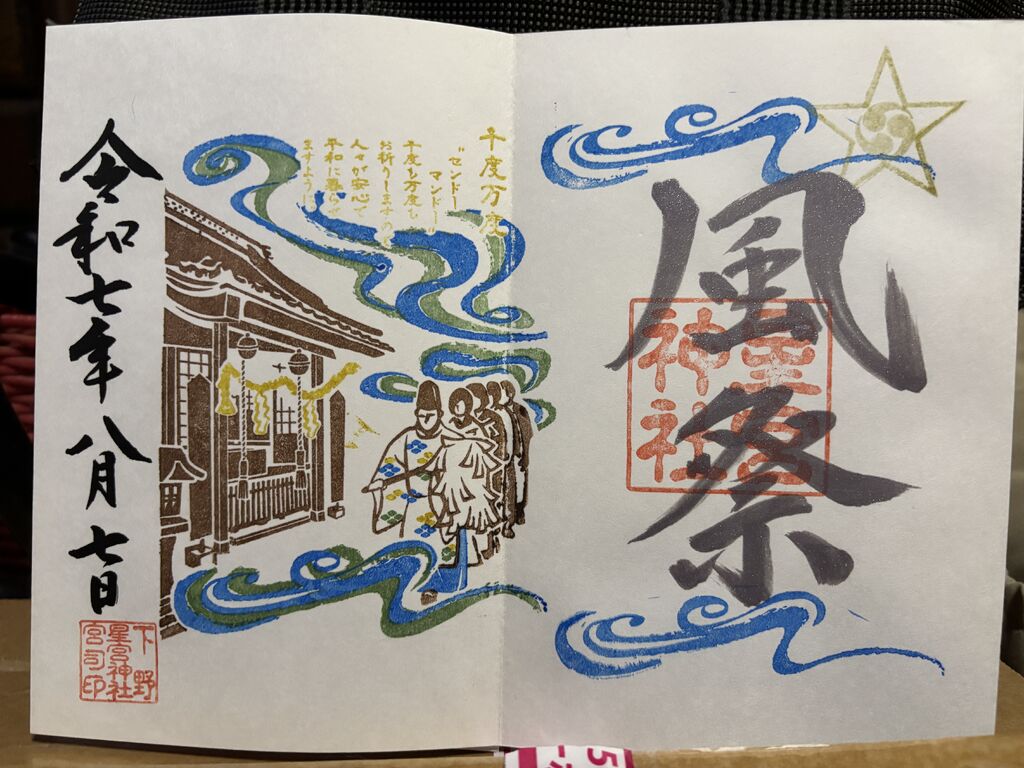 風祭
星宮
神社
千度万度
"センドー
マンドー"
千度も万度も
お祈りしますので
人々が安心で
平和に暮らせ
ますように
令和七年八月七日
下野
星宮神社
宮司印